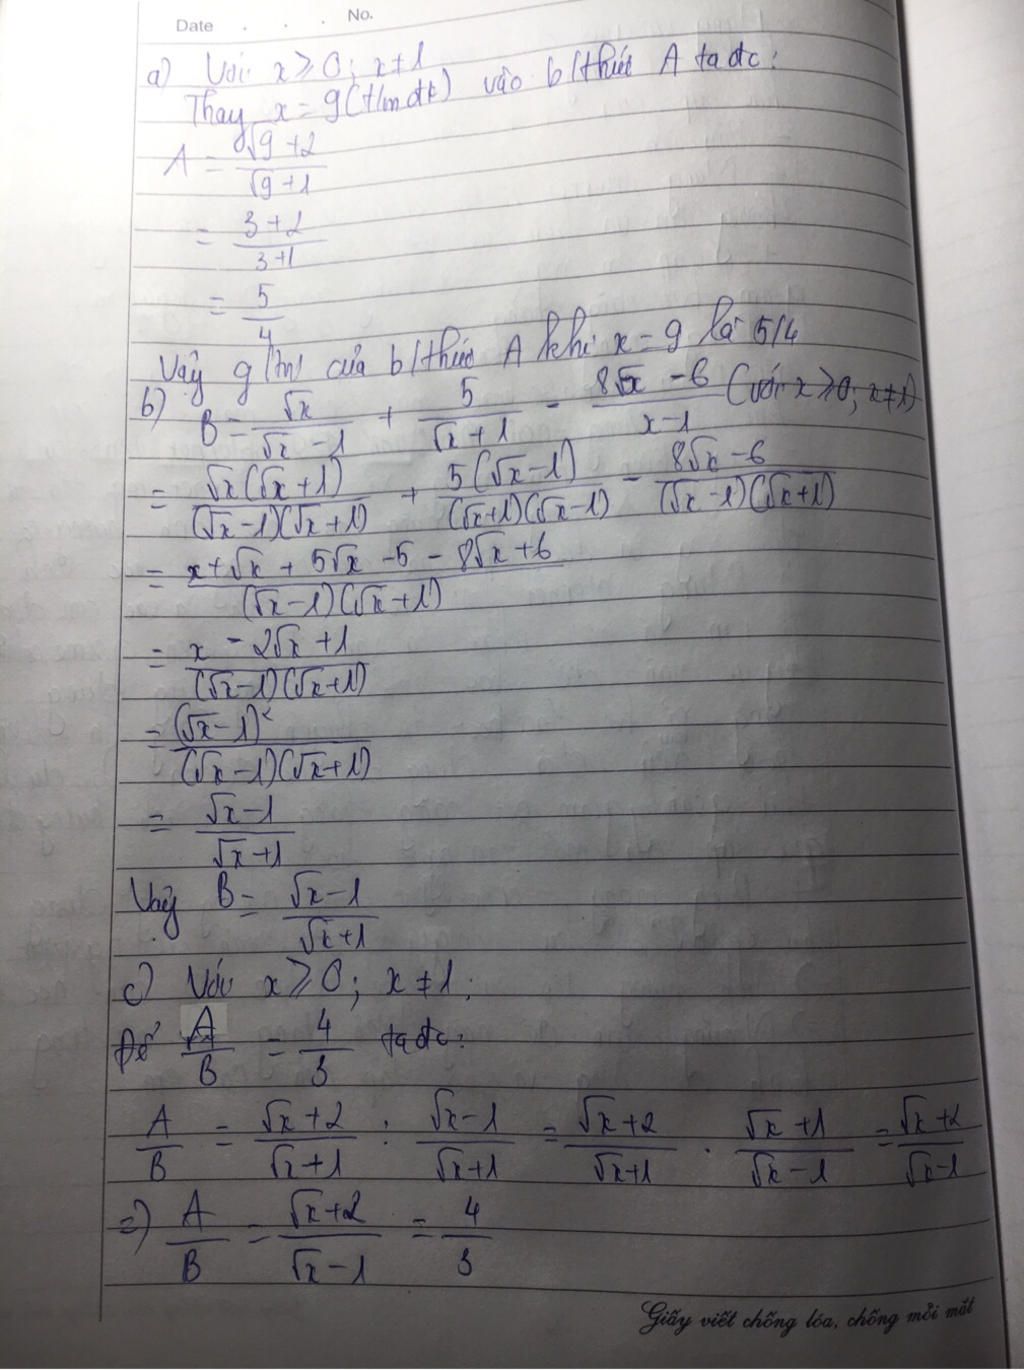 Date . . . No.
a) Với x ≥ 0; x ≠ 1
Thay x = 9 (t/m đk) vào b/thức A ta đc:
A = (√9 + 2)/(√9 + 1)
= (3 + 2)/(3 + 1)
= 5/4
Vậy g/trị của b/thức A khi x = 9 là 5/4
b) B = √x/(√x - 1) + 5/(√x + 1) - (8√x - 6)/(x - 1) (với x ≥ 0; x ≠ 1)
= √x(√x + 1)/(√x - 1)(√x + 1) + 5(√x - 1)/(√x + 1)(√x - 1) - (8√x - 6)/(√x - 1)(√x + 1)
= (x + √x + 5√x - 5 - 8√x + 6)/(√x - 1)(√x + 1)
= (x - 2√x + 1)/(√x - 1)(√x + 1)
= (√x - 1)²/(√x - 1)(√x + 1)
= (√x - 1)/(√x + 1)
Vậy B = (√x - 1)/(√x + 1)
c) Với x ≥ 0; x ≠ 1;
Để A/B = 4/3 ta đc:
A/B = (√x + 2)/(√x + 1) : (√x - 1)/(√x + 1) = (√x + 2)/(√x + 1) . (√x + 1)/(√x - 1) = (√x + 2)/(√x - 1)
=> A/B = (√x + 2)/(√x - 1) = 4/3
Giấy viết chống lóa, chống mỏi mắt